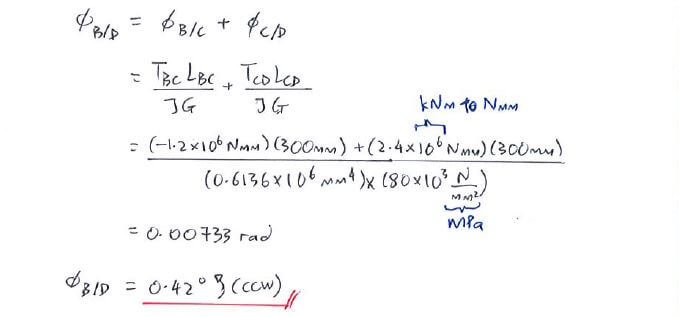 ϕB/D = ϕB/C + ϕC/D
= TBC LBC / JG + TCD LCD / JG
kNm to Nmm
= (-1.2×10⁶ Nmm)(300mm) + (2.4×10⁶ Nmm)(300mm) / (0.6136×10⁶ mm⁴)×(80×10³ N/mm²)
MPa
= 0.00733 rad
ϕB/D = 0.42° (ccw)